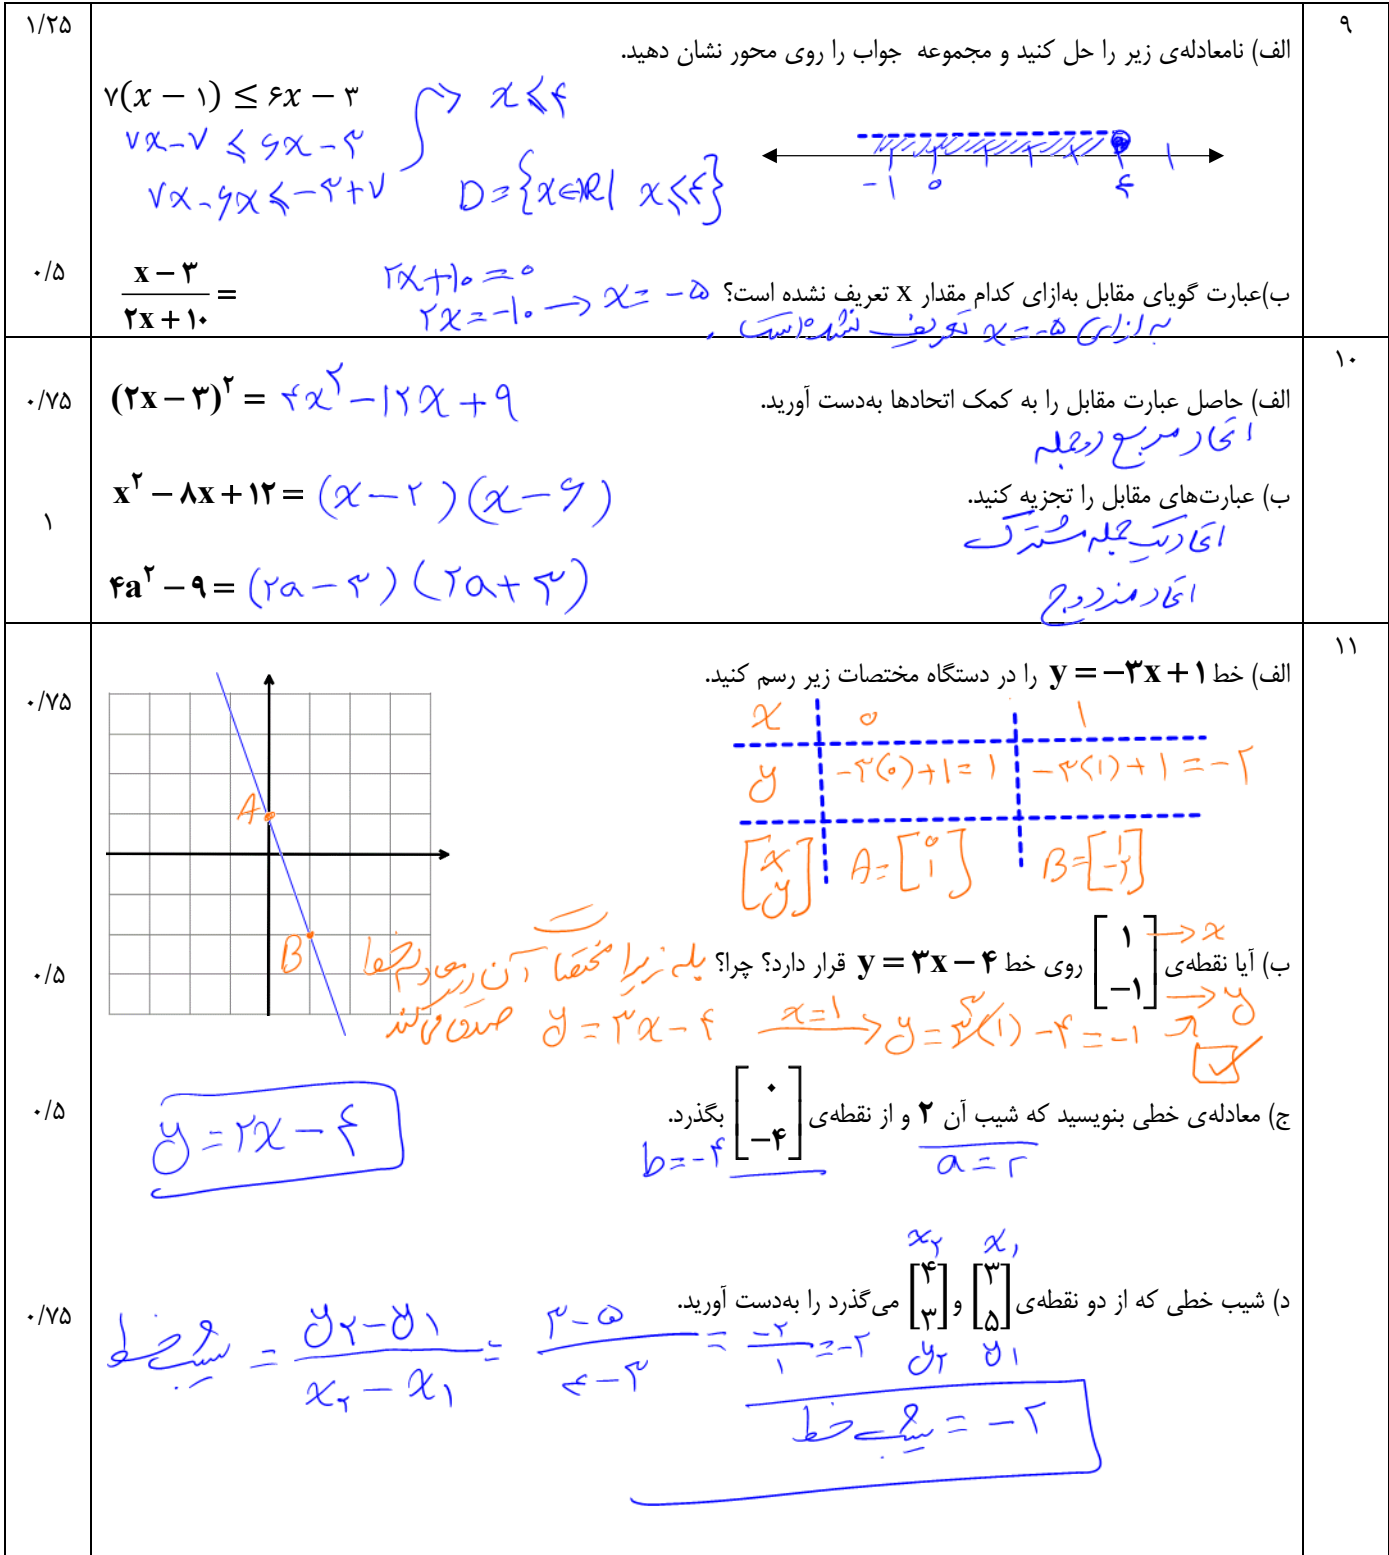 ۹
الف) نامعادله‌ی زیر را حل کنید و مجموعه جواب را روی محور نشان دهید.
۱/۲۵
۷(x − ۱) ≤ ۶x − ۳
۷x − ۷ ≤ ۶x − ۳
۷x − ۶x ≤ −۳ + ۷
x ≤ ۴
D = {x ∈ ℝ | x ≤ ۴}
−۱ ۰ ۴
ب)عبارت گویای مقابل به‌ازای کدام مقدار x تعریف نشده است؟
۰/۵
x − ۳ / ۲x + ۱۰ =
۲x + ۱۰ = ۰
۲x = −۱۰ → x = −۵
به ازای x = −۵ تعریف نشده است.
۱۰
الف) حاصل عبارت مقابل را به کمک اتحادها به‌دست آورید.
اتحاد مربع دوجمله
۰/۷۵
(۲x − ۳)^۲ = ۴x^۲ − ۱۲x + ۹
ب) عبارت‌های مقابل را تجزیه کنید.
۱
x^۲ − ۸x + ۱۲ = (x − ۲)(x − ۶)
اتحاد یک جمله مشترک
۴a^۲ − ۹ = (۲a − ۳)(۲a + ۳)
اتحاد مزدوج
۱۱
الف) خط y = −۳x + ۱ را در دستگاه مختصات زیر رسم کنید.
۰/۷۵
x ۰ ۱
y −۳(۰)+۱=۱ −۳(۱)+۱=−۲
[x y] A=[۰ ۱] B=[۱ −۲]
A
B
ب) آیا نقطه‌ی [۱ −۱] روی خط y = ۳x − ۴ قرار دارد؟ چرا؟
→ x
→ y
۰/۵
بله زیرا مختصات آن در معادله خط
صدق می‌کند
y = ۳x − ۴ x=۱ → y = ۳(۱) − ۴ = −۱
ج) معادله‌ی خطی بنویسید که شیب آن ۲ و از نقطه‌ی [۰ −۴] بگذرد.
a = ۲
b = −۴
۰/۵
y = ۲x − ۴
x۲ x۱
د) شیب خطی که از دو نقطه‌ی [۳ ۵] و [۴ ۳] می‌گذرد را به‌دست آورید.
y۲ y۱
۰/۷۵
شیب خط = y۲ − y۱ / x۲ − x۱ = ۳ − ۵ / ۴ − ۳ = −۲ / ۱ = −۲
شیب خط = −۲